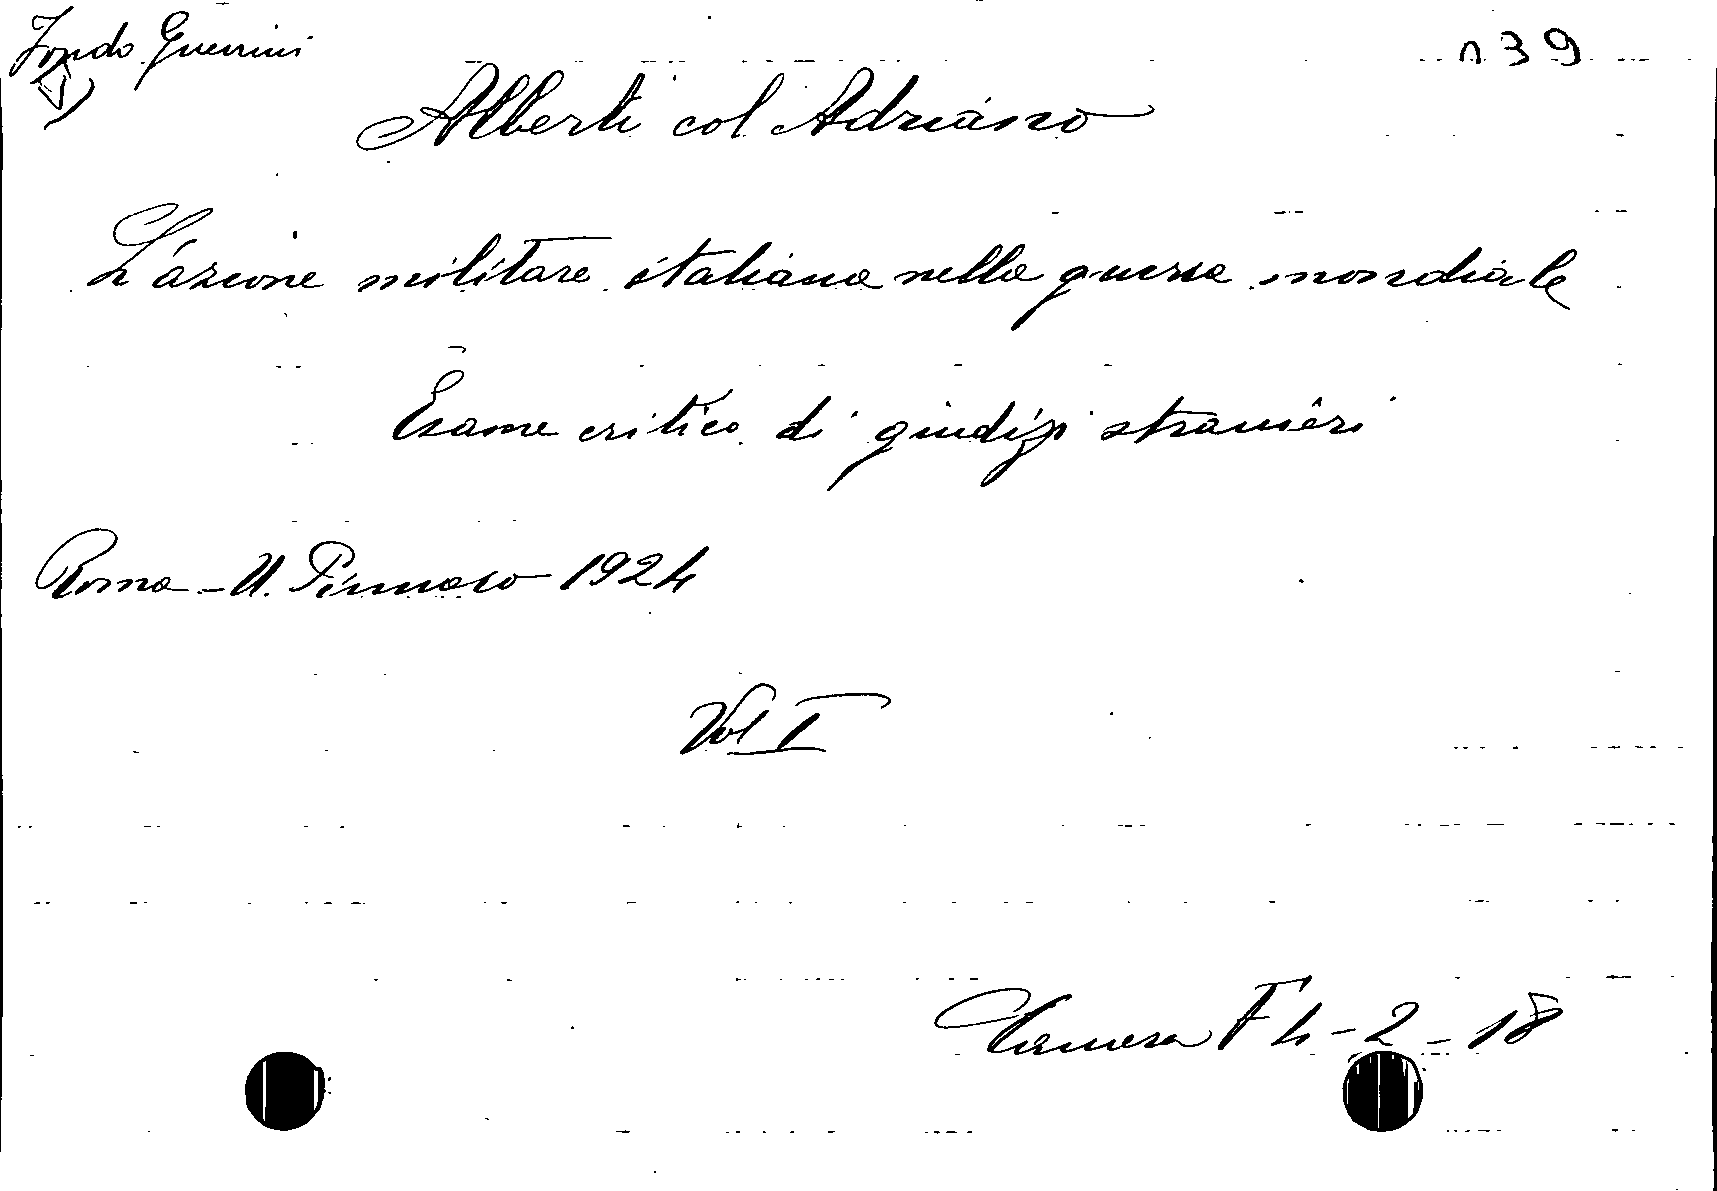 Fondo Guerrini
n 39
Alberti col Adriano
L'azione militare italiana nella guerra mondiale
Esame critico di giudizi stranieri
Roma - U. Pinnarò 1924
Vol I
Camera F 4 - 2 - 18